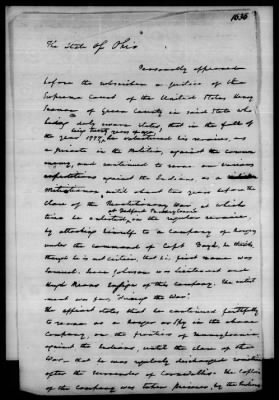 1636
The State of Ohio
Personally appeared
before the subscriber a Justice of the
Supreme Court of the United States Henry
of Green County in said State who
being duly sworn states, that in the fall of
being twenty years of age
the year 1777, he volunteered his services, as
a private in the Militia, against the common
enemy, and continued to serve on various
expeditions against the Indians, as a
Militiaman, until about two years before the
close of the Revolutionary War, at which
at Bedford Pennsylvania
time he enlisted, in the regular service,
by attaching himself to a company of rangers
under the command of Capt Boyd, he thinks
though he is not certain, that his first name was
Samuel. Johnson was Lieutenant and
Ensign of this company. The enlist
ment was for, "During the War".
The affiant states that he continued faithfully
to serve as a ranger or spy in the above
Company, on the frontiers of Pennsylvania
against the Indians, until the close of the
War, that he was regularly discharged
after the surrender of Cornwallis. The Captain
of the Company was taken prisoner, by the Indians